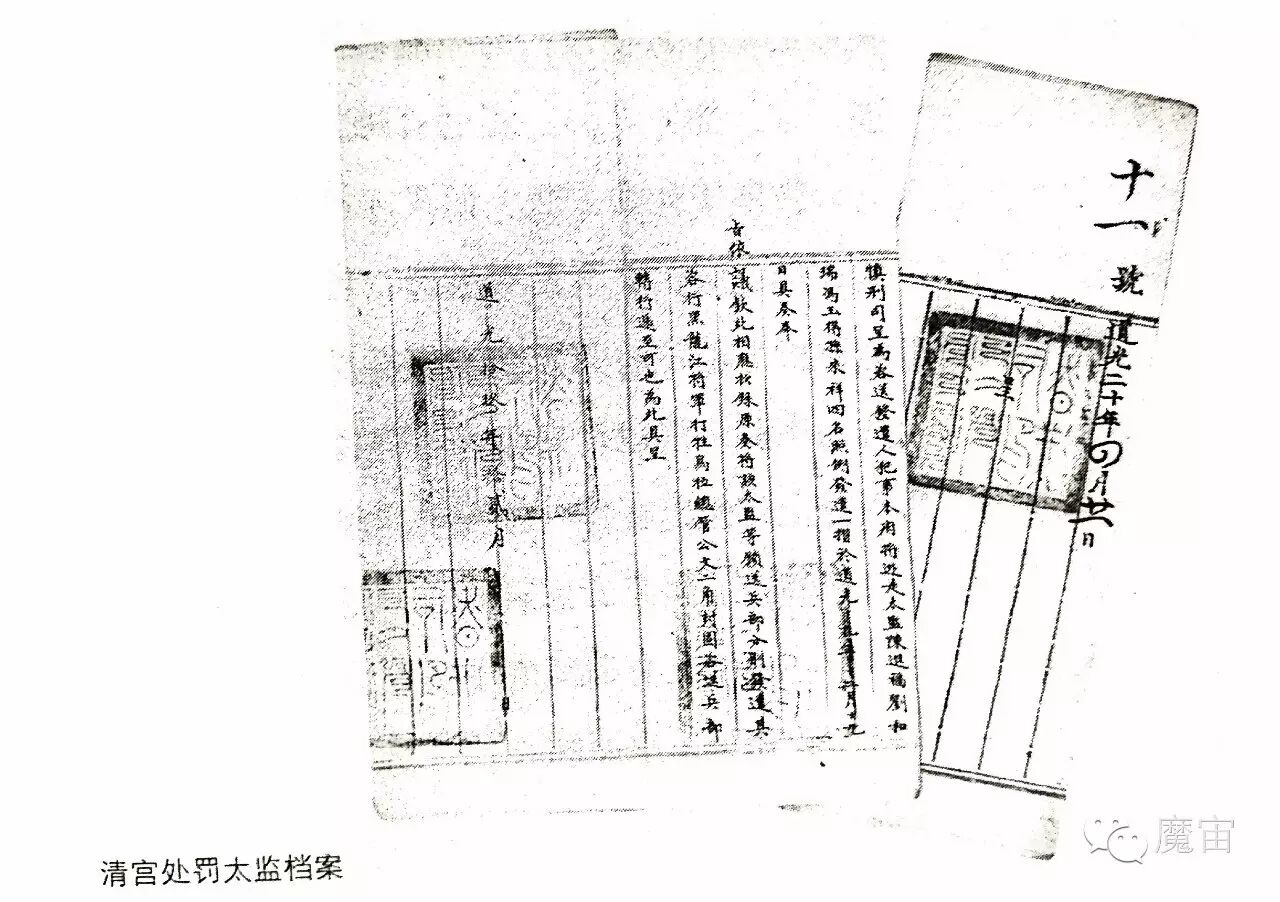 十一號
道光二十年四月廿一日
呈
慎刑司呈為咨送發遣人犯事本府將逃走太監陳進福劉和
瑞馮玉得孫來祥四名照例發遣一摺於道光十九年十二月十九
日具奏奉
旨依議欽此相應抄錄原奏將該太監等額送兵部分別發遣其
咨行黑龍江將軍打牲烏拉總管公文二角封固咨送兵部
轉行遞至可也為此具呈
道光拾玖年拾貳月 日
清宫处罚太监档案
魔宙